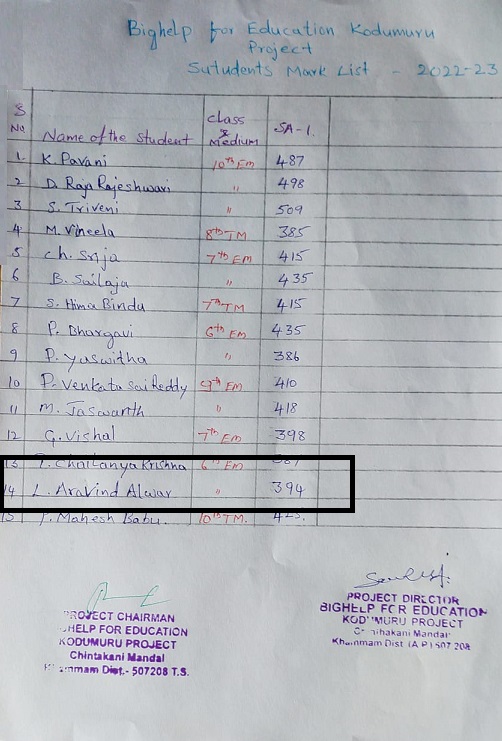 Bighelp for Education Kodumuru
Project
Sutudents Mark List - 2022-23
S No Name of the Student Class & Medium SA-1.
1. K. Pavani 10th EM 487
2 D. Raja Rajeshwari " 498
3 S. Triveni " 509
4 M. Vineela 8th TM 385
5 Ch. Srija 7th EM 415
6 B. Sailaja " 435
7 S. Hima Bindu 7th TM 415
8 P. Bhargavi 6th EM 435
9 P. Yaswitha " 386
10 P. Venkata Sai Reddy 9th EM 410
11 M. Jaswanth " 418
12 G. Vishal 7th EM 398
13 Chaitanya Krishna 6th EM
14 L. Aravind Alwar " 394
15 Mahesh Babu. 10th TM. 423.
PROJECT CHAIRMAN
GHELP FOR EDUCATION
KODUMURU PROJECT
Chintakani Mandal
Khammam Dist.- 507208 T.S.
PROJECT DIRECTOR
BIGHELP FOR EDUCATION
KODUMURU PROJECT
Chintakani Mandal
Khammam Dist (A.P) 507 208